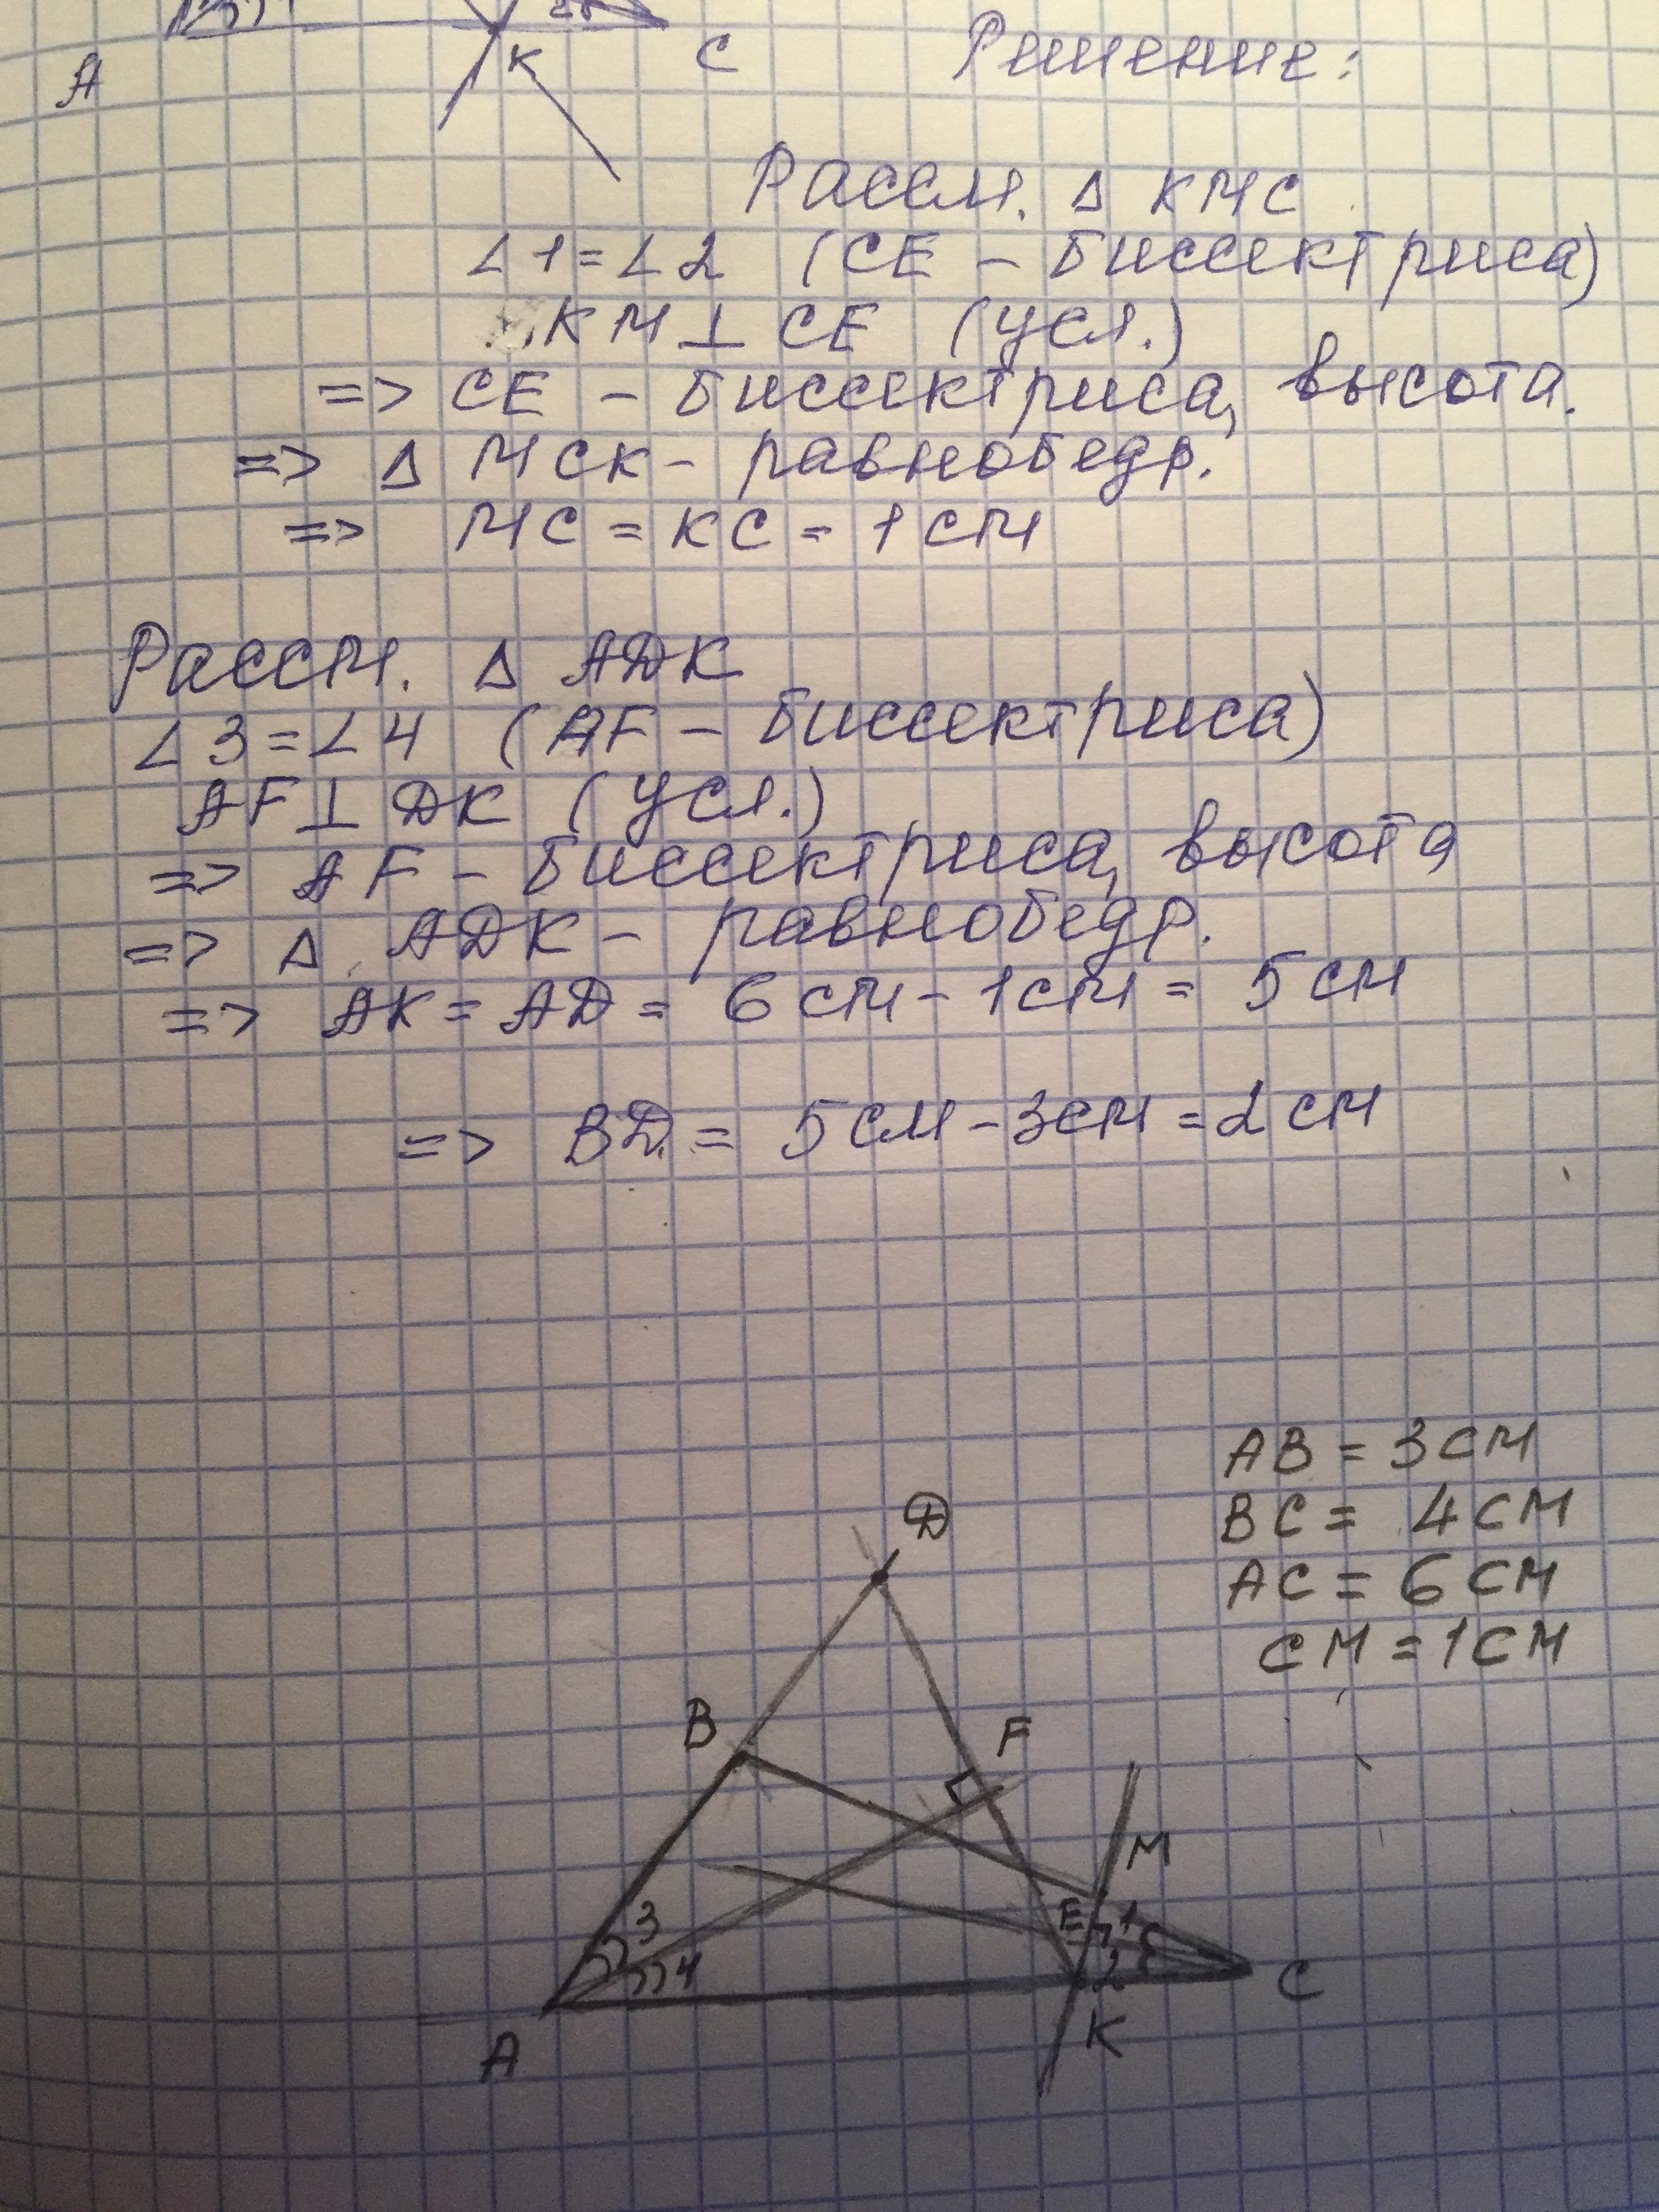 A K 2 C Решение:
Рассм. Δ KMC
∠1=∠2 (CE – биссектриса)
KM⊥CE (усл.)
=> CE – биссектриса, высота.
=> Δ MCK – равнобедр.
=> MC = KC = 1 см
Рассм. Δ ADK
∠3=∠4 (AF – биссектриса)
AF⊥DK (усл.)
=> AF – биссектриса, высота
=> Δ ADK – равнобедр.
=> AK = AD = 6 см – 1 см = 5 см
=> BD = 5 см – 3 см = 2 см
AB = 3 см
BC = 4 см
AC = 6 см
CM = 1 см
D
B F
M
3 E 1
4 2 C
A K